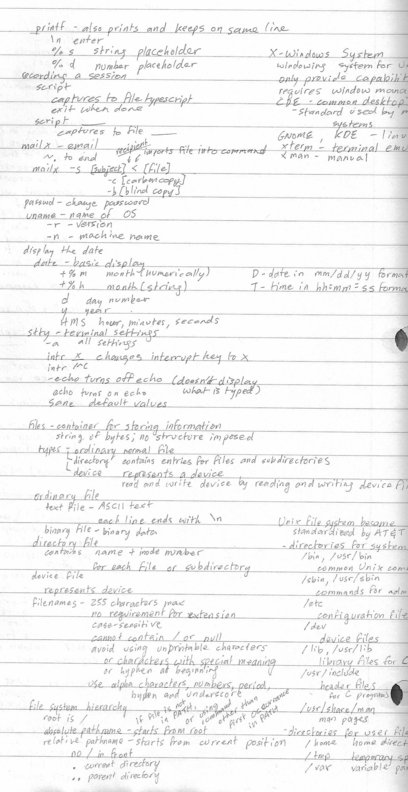 printf - also prints and keeps on same line
\n enter
% s string placeholder
% d number placeholder
recording a session
script
captures to file typescript
exit when done
script ____
captures to file ____
mailx - email
~. to end
recipient
imports file into command
mailx -s [subject] < [file]
-c [carbon copy]
-b [blind copy]
passwd - change password
uname - name of OS
-r - version
-n - machine name
display the date
date - basic display
+%m month (numerically)
+%h month (string)
d day number
y year
HMS hour, minutes, seconds
stty - terminal settings
-a all settings
intr x changes interrupt key to x
intr ^C
-echo turns off echo (doesn't display
what is typed)
echo turns on echo
sane default values
X-Windows System
windowing system for
only provide
requires window
CDE - common desktop
- standard used by
systems
GNOME, KDE -
xterm - terminal
xman - manual
D - date in mm/dd/yy format
T - time in hh:mm:ss
files - container for storing information
string of bytes; no structure imposed
types: ordinary normal file
directory contains entries for files and subdirectories
device represents a device
read and write device by reading and writing device
ordinary file
text file - ASCII text
each line ends with \n
binary file - binary data
directory file
contains name + inode number
for each file or subdirectory
device file
represents device
filenames - 255 characters max
no requirement for extension
case-sensitive
cannot contain / or null
avoid using unprintable characters
or characters with special meaning
or hyphen at beginning
use alpha characters, numbers, period,
hyphen and underscore
file system hierarchy
root is /
if file is not
in PATH,
or using
command
other than
first occurrence
in PATH
absolute pathname - starts from root
relative pathname - starts from current position
no / in front
. current directory
.. parent directory
Unix file system became
standardized by AT&T
- directories for system
/bin, /usr/bin
common Unix
/sbin, /usr/sbin
commands for
/etc
configuration
/dev
device files
/lib, /usr/lib
library files for C
/usr/include
header files
for C programs
/usr/share/man
man pages
- directories for user
/home home
/tmp temporary
/var variable